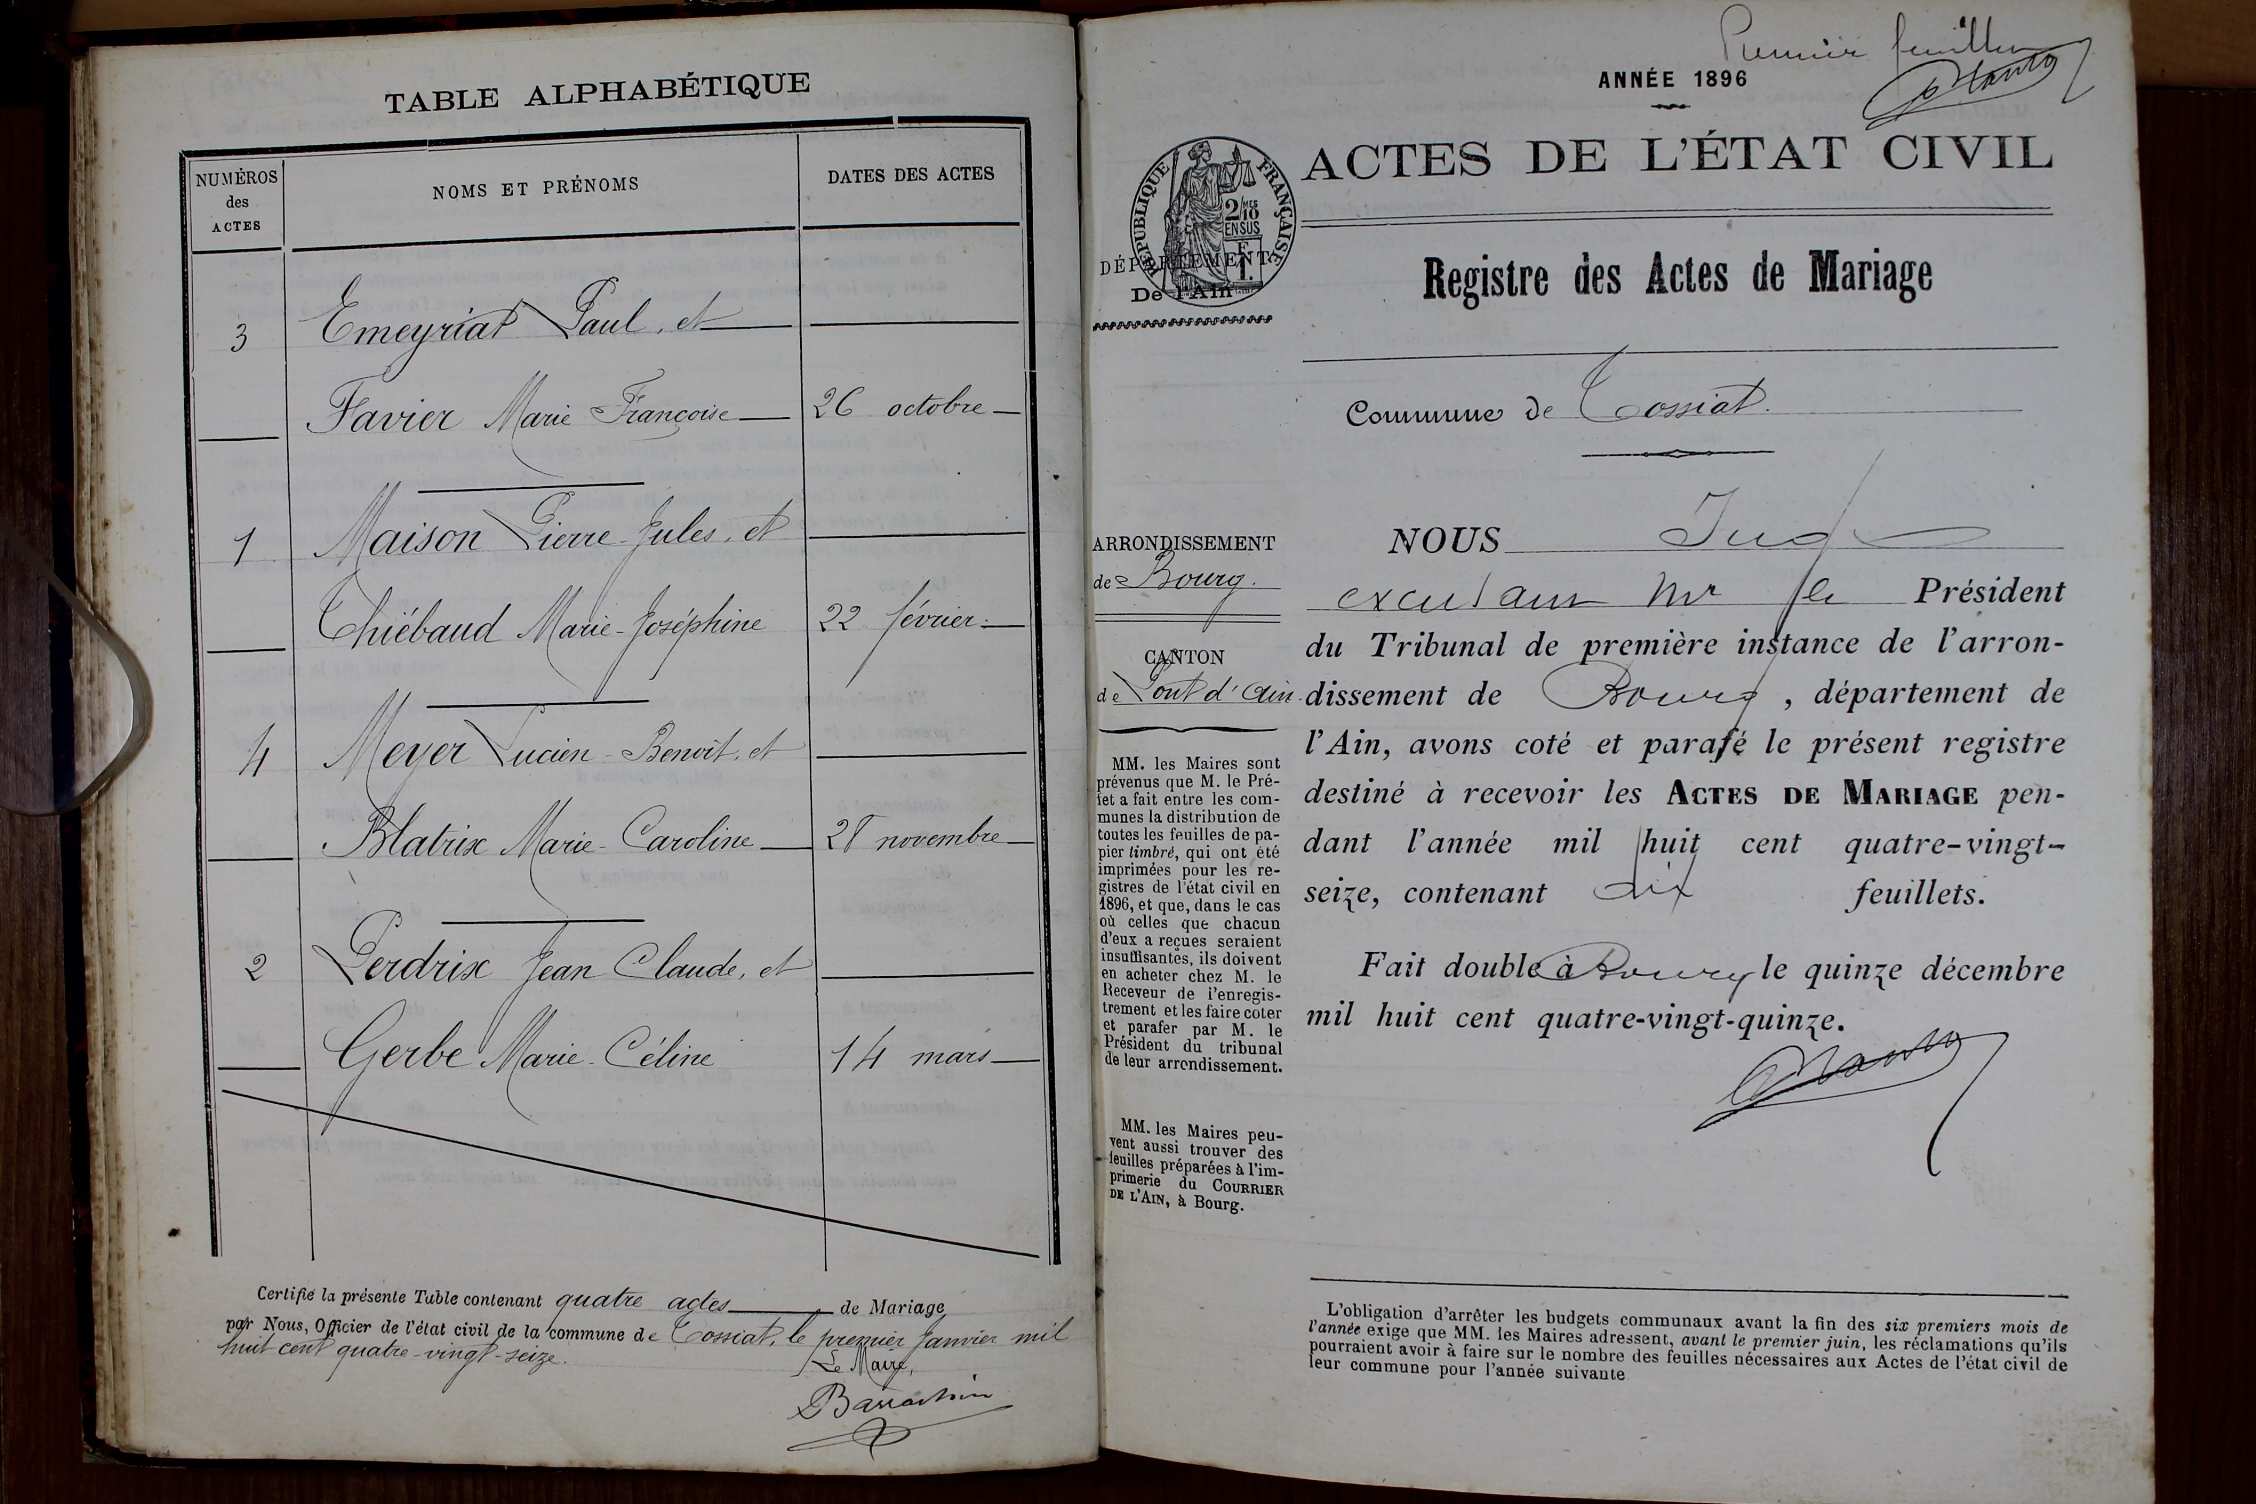 TABLE ALPHABÉTIQUE
NUMÉROS
des
ACTES
NOMS ET PRÉNOMS
DATES DES ACTES
3 Emeyriat Paul, et
Favier Marie Françoise 26 octobre
1 Maison Pierre-Jules, et
Thiébaud Marie-Joséphine 22 février
4 Meyer Lucien-Benoît, et
Blatrix Marie-Caroline 28 novembre
2 Perdrix Jean Claude, et
Gerbe Marie-Céline 14 mars
Certifié la présente Table contenant quatre actes de Mariage
par Nous, Officier de l'état civil de la commune de Tossiat, le premier Janvier mil
huit cent quatre-vingt-seize.
Le Maire,
Premier feuillet
ANNÉE 1896
ACTES DE L'ÉTAT CIVIL
RÉPUBLIQUE FRANÇAISE
2/10
MES
EN SUS
DÉPARTEMENT
De l'Ain
Registre des Actes de Mariage
Commune de Tossiat.
ARRONDISSEMENT
de Bourg.
CANTON
de Pont d'Ain.
MM. les Maires sont
prévenus que M. le Pré-
fet a fait entre les com-
munes la distribution de
toutes les feuilles de pa-
pier timbré, qui ont été
imprimées pour les re-
gistres de l'état civil en
1896, et que, dans le cas
où celles que chacun
d'eux a reçues seraient
insuffisantes, ils doivent
en acheter chez M. le
Receveur de l'enregis-
trement et les faire coter
et parafer par M. le
Président du tribunal
de leur arrondissement.
MM. les Maires peu-
vent aussi trouver des
feuilles préparées à l'im-
primerie du COURRIER
DE L'AIN, à Bourg.
NOUS Juge
Mr le Président
du Tribunal de première instance de l'arron-
dissement de Bourg, département de
l'Ain, avons coté et parafé le présent registre
destiné à recevoir les ACTES DE MARIAGE pen-
dant l'année mil huit cent quatre-vingt-
seize, contenant dix feuillets.
Fait double à Bourg le quinze décembre
mil huit cent quatre-vingt-quinze.
L'obligation d'arrêter les budgets communaux avant la fin des six premiers mois de
l'année exige que MM. les Maires adressent, avant le premier juin, les réclamations qu'ils
pourraient avoir à faire sur le nombre des feuilles nécessaires aux Actes de l'état civil de
leur commune pour l'année suivante